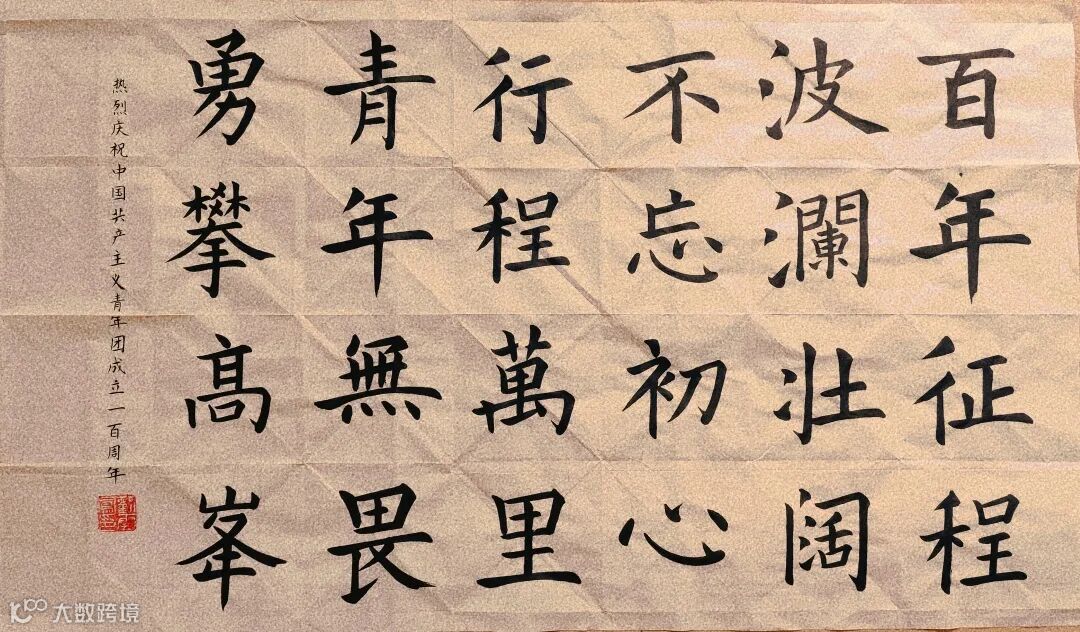 百年征程
波瀾壮阔
不忘初心
行程萬里
青年無畏
勇攀髙峯
热烈庆祝中国共产主义青年团成立一百周年
大数跨境